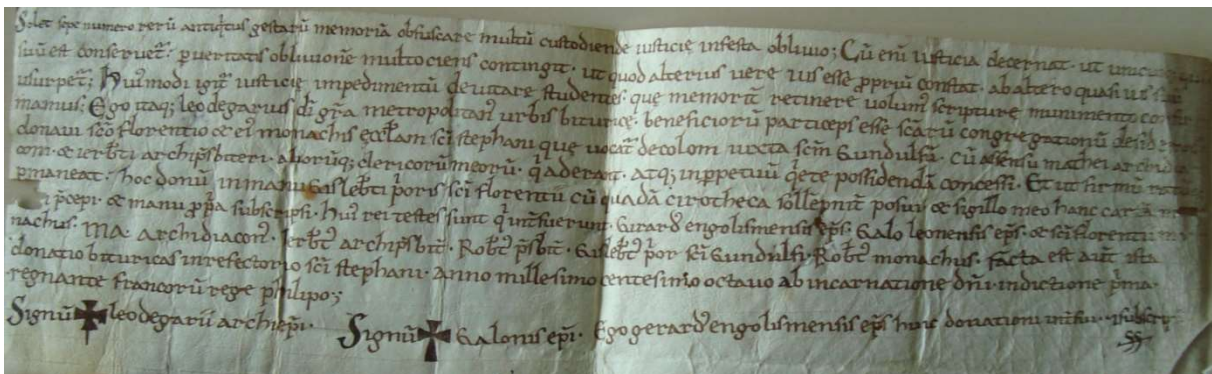 Solet sepe numero rerū antiq̇tus gestarū memoriā obfuscare multū custodiende iusticie infesta oblivio; Cū eni iusticia decernat ut unicuiq;
suū est conservet᷑. p veritatis oblivionē multociens contingit. ut quod alterius vere ius esse ppriū constat. ab altero quasi ius suū
usurpet᷑; Huiꝰmodi igit᷑ iusticie impedimentū devitare studentes. que memorit᷑ retinere volumꝰ scripture munimento confir
mamus; Ego itaq; leodegarius di gr̄a metropolitanꝰ urbis biturice. beneficiorū particeps esse scārū congregationū desiderans
donavi scō florentio & eiꝰ monachis eccl̄am scī stephani que vocat᷑ decolom iuxta scm̄ Gundulfū. cū assensu mathei archidia
coni. & ierbti archip̄sbiteri. aliorūq; clericorū meorū. q̇ aderant. atq; inppetuū q̇ete possidendā concessi. Et ut firmū ratūq;
pmaneat. hoc donū in manu Gisleb̄ti p̓oris scī florentii cū quadā cirotheca sollēpnit᷑ posui & sigillo meo hanc cartā
p̄cepi. & manu ppa subscripsi. Huiꝰ rei testes sunt q̇ int᷑fuerunt. Girardꝰ engolismensis ep̄s. Galo leonensis ep̄s. & scī florentii mo
nachus. Ma. archidiaconꝰ. Ierb̄tꝰ archip̄sbit᷑. Rob̄tꝰ p̄sbit᷑. Gisleb̄tꝰ p̓or scī Gundulfi. Rob̄tꝰ monachus. facta est aut᷑ ista
donatio bituricas in refectorio scī stephani. anno millesimo centesimo octavo ab incarnatione dn̄i. indictione p̓ma.
regnante francorū rege philipo;
Signū leodegarii archiep̄i. Signū Galonis ep̄i. Ego gerardꝰ engolismensis ep̄s huic donationi int᷑fui & subscripsi